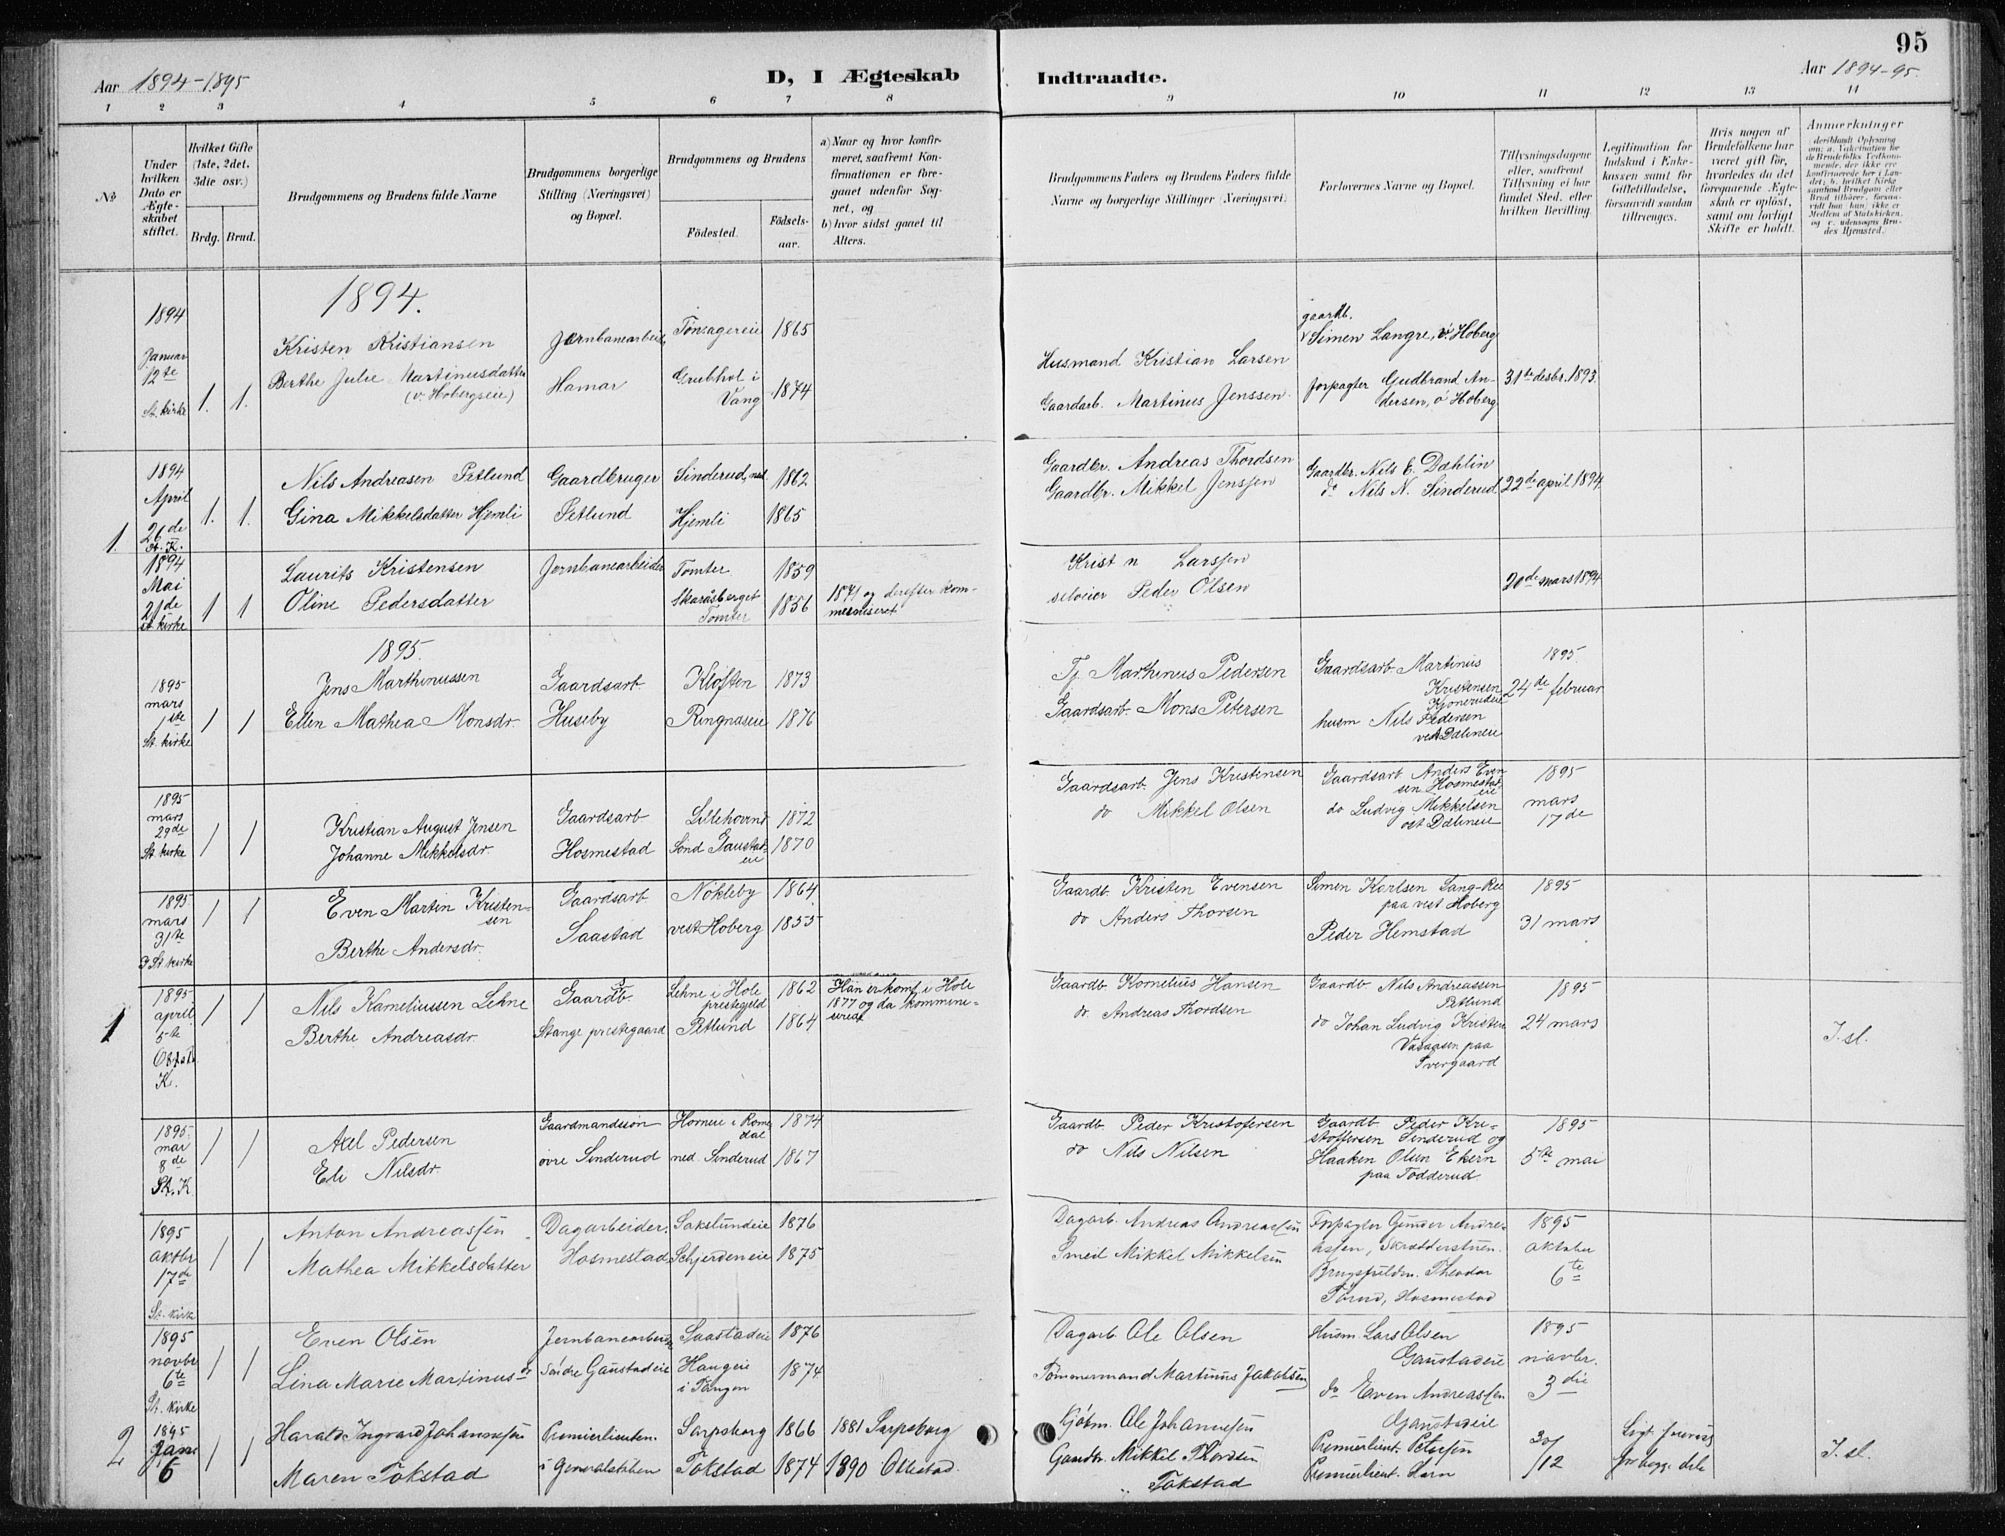 95
Aar 1894-1895
D, I Ægteskab
Indtraadte.
Aar 1894-95.
1 2 3 4 5 6 7 8 9 10 11 12 13 14
No
Under
hvilken
Dato er
Ægte-
skabet
stiftet.
Hvilket Gifte
(1ste, 2det,
3die osv.)
Brdg. Brud.
Brudgommens og Brudens fulde Navne
Brudgommens borgerlige
Stilling (Næringsvei)
og Bopæl.
Brudgommens og Brudens
Fødested.
Fødsels-
aar.
a) Naar og hvor konfir-
meret, saafremt Kon-
firmationen er fore-
gaaet udenfor Sog-
net, og
b) hvor sidst gaaet til
Alters.
Brudgommens Faders og Brudens Faders fulde
Navne og borgerlige Stillinger (Næringsvei).
Forlovernes Navne og Bopæl.
Tillysningsdagene
eller, saafremt
Tillysning ei har
fundet Sted, efter
hvilken Bevilling.
Legitimation for
Indskud i Enke-
kassen samt for
Giftetilladelse,
forsaavidt saadan
tiltrænges.
Hvis nogen af
Brudefolkene har
været gift før,
hvorledes da det
foregaaende Ægte-
skab er opløst,
samt om lovligt
Skifte er holdt.
Anmerkninger
(deriblandt Oplysning
om: a. Vakcination for
de Brudefolks Vedkom-
mende, der ikke ere
konfirmerede her i Lan-
det; b. hvilket Kirke
samfund Brudgom eller
Brud tilhører, forsaa-
vidt han (hun) ikke er
Medlem af Statskirken,
og c. udensogns Bru-
des Hjemsted.
1894.
1894
Januar
12te
St. kirke
1. 1.
Kristen Kristiansen
Berthe Julie Martinusdatter
(v. Hobergseie)
Jernbanearbeider
Hamar
Tønsagereie 1865
Grubhol i
Vang 1874
Husmand Kristian Larsen
Gaardarb. Martinus Jenssen
gaardb.
Simen Langre, v. Hoberg
forpagter Gudbrand An-
dersen, ø Hoberg
31te desbr. 1893.
1.
1894
April
26de
St. K.
1. 1.
Nils Andreasen Petlund
Gina Mikkelsdatter Hjemli
Gaardbruger
Petlund
Sinderud, ned 1862
Hjemli 1865
Gaardbr. Andreas Thordsen
Gaardbr. Mikkel Jenssen
Gaardbr. Nils E. Dæhlin
do Nils N. Sinderud
22de april 1894
1894
Mai
21de
St. kirke
1 1
Laurits Kristensen
Oline Pedersdatter
Jernbanearbeider
Tomter 1859
Skaråsberget
Tomter 1856
1871 og derefter kom-
meniseret
Krist n Larssen
seloier Peder Olsen
20de mars 1894
1895.
1895
mars
1ste
St. kirke
1 1
Jens Marthinussen
Ellen Mathea Monsdr.
Gaardsarb
Huseby
Kløften 1873
Ringnæseie 1876
Tj. Marthinus Pedersen
Gaardsarb. Mons Petersen
Gaardsarb Martinus
Kristensen
Kjonerudeie
husm Nils Pedersen
vest Dælineie
1895
24de februar
1895
mars
29de
St. kirke
1 1
Kristian August Jensen
Johanne Mikkelsdr.
Gaardsarb
Hosmestad
Lillehovind 1872
Sønd Gaustad-
eie 1870
Gaardsarb. Jens Kristensen
do Mikkel Olsen
Gaardsarb Anders Even
sen Hosmestad-
eie
do Ludvig Mikkelsen
øst Dælineie
1895
mars
17de
1895
mars
31te
St. kirke
1 1
Even Martin Kristen-
sen
Berthe Andersdr.
Gaardsarb
Saastad
Nøkleby 1864
vest Hoberg 1855
Gaardb Kristen Evensen
do Anders Thorsen
Simen Karlsen Lang-Ree
paa vest Hoberg
Peder Hemstad
1895
31 mars
1
1895
april
5te
Ottest.
K.
1 1
Nils Kameliussen Lehne
Berthe Andreasdr.
Gaardb.
Stange prestegaard
Lehne i Hole
prestegjeld 1862
Petlund 1864
Han er konf. i Hole
1877 og da kommuni-
ceret
Gaardb Kornelius Hansen
do. Andreas Thordsen
Gaardb Nils Andreassen
Petlund
do Johan Ludvig Kristen
Vasaasen paa
Tvergaard
1895
24 mars
I. sl.
1895.
mai
8de
St. K
1 1
Axel Pedersen
Eli Nilsdr.
Gaardmandssøn
øvre Sinderud
Horneie i Rome
dal 1874
ned. Sinderud 1867
Gaardb. Peder Kristofersen
do Nils Nilsen
Gaardb Peder Kri-
stoffersen Sinderud og
Haaken Olsen Ekern
paa Tødderud
1895
5te mai
1895
oktbr
17de
St. kirke
1 1
Anton Andreassen
Mathea Mikkelsdatter
Dagarbeider.
Hosmestad
Sakslundeie 1876
Schjerdeneie 1875
Dagarb. Andreas Andreassen
Smed Mikkel Mikkelsen
Forpagter Gunder Andre-
assen, Skrædderstuen.
Brugsfuldm. Theodor
Tørud, Hosmestad
1895
oktober
6te
1895
novbr
6te
St. kirke
1 1
Even Olsen
Lina Marie Martinusdr
Jernbanearbeider
Søndre Gaustadeie
Saastadeie 1876
Haugeie
i Tangen 1874
Dagarb. Ole Olsen
Tømmermand Martinus Jakobsen
Husm. Lars Olsen
Gaustadeie
do Even Andreassen
Gaustadeie
1895
novbr.
3die
2
1895
Jan
6
1 1
Harald Ingvard Johannesen
Maren Tokstad
Premierlieuten.
i Generalstaben
Sarpsborg 1866
Tokstad 1874
1881 Sarpsborg
1890 Ottestad.
Kjøbm. Ole Johannesen
Gaardbr. Mikkel Thordsen
Tokstad
Premierlieut. Petersen
Premierlieut. Lorn
30/12
for begge dele
I. sl.